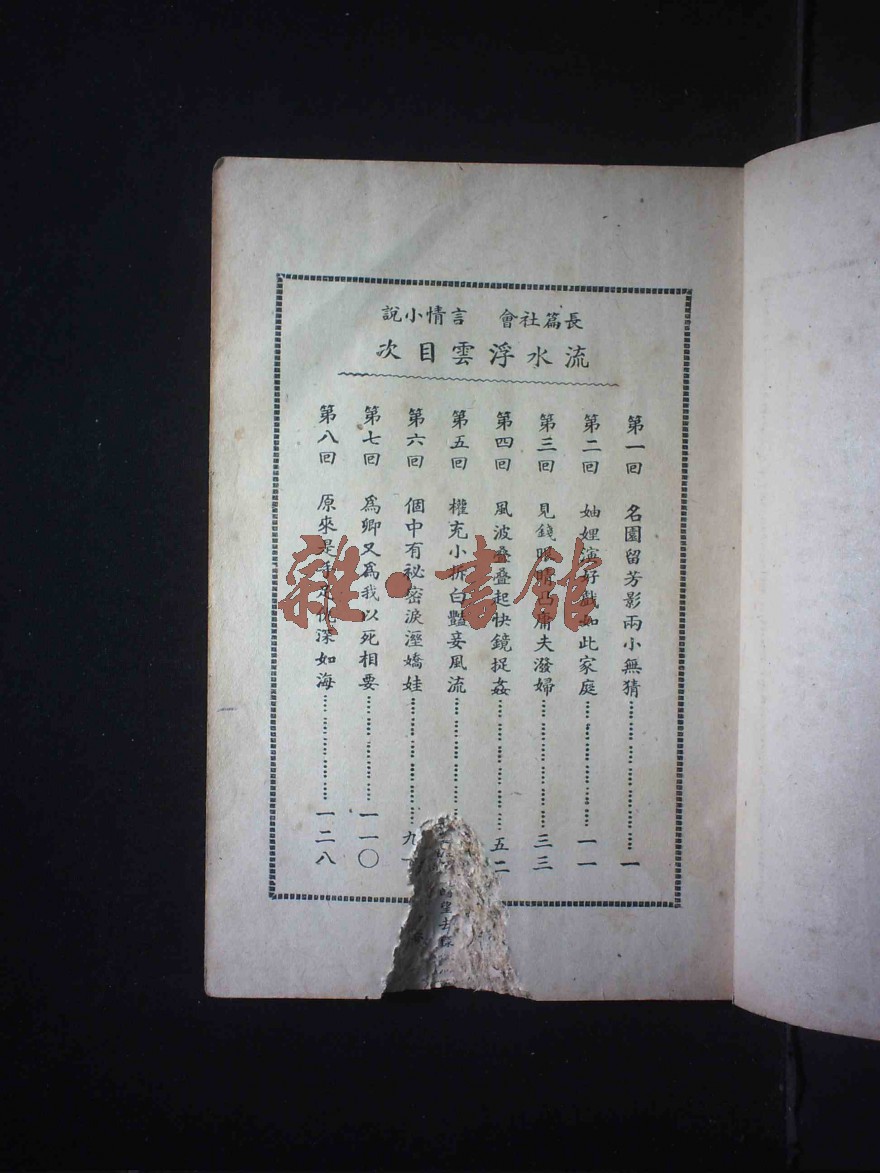 長篇社會 言情小說
流水浮雲目次
第一回 名園留芳影兩小無猜……………………一
第二回 妯娌演好戲如此家庭……………………一一
第三回 見錢眼明凸庸夫潑婦……………………三三
第四回 風波叠叠起快鏡捉姦……………………五二
第五回 權充小拆白豔妾風流……………………
第六回 個中有祕密淚溼嬌娃……………………九
第七回 爲卿又爲我以死相要……………………一一〇
第八回 原來是 仇深如海……………………一二八
雜·書館